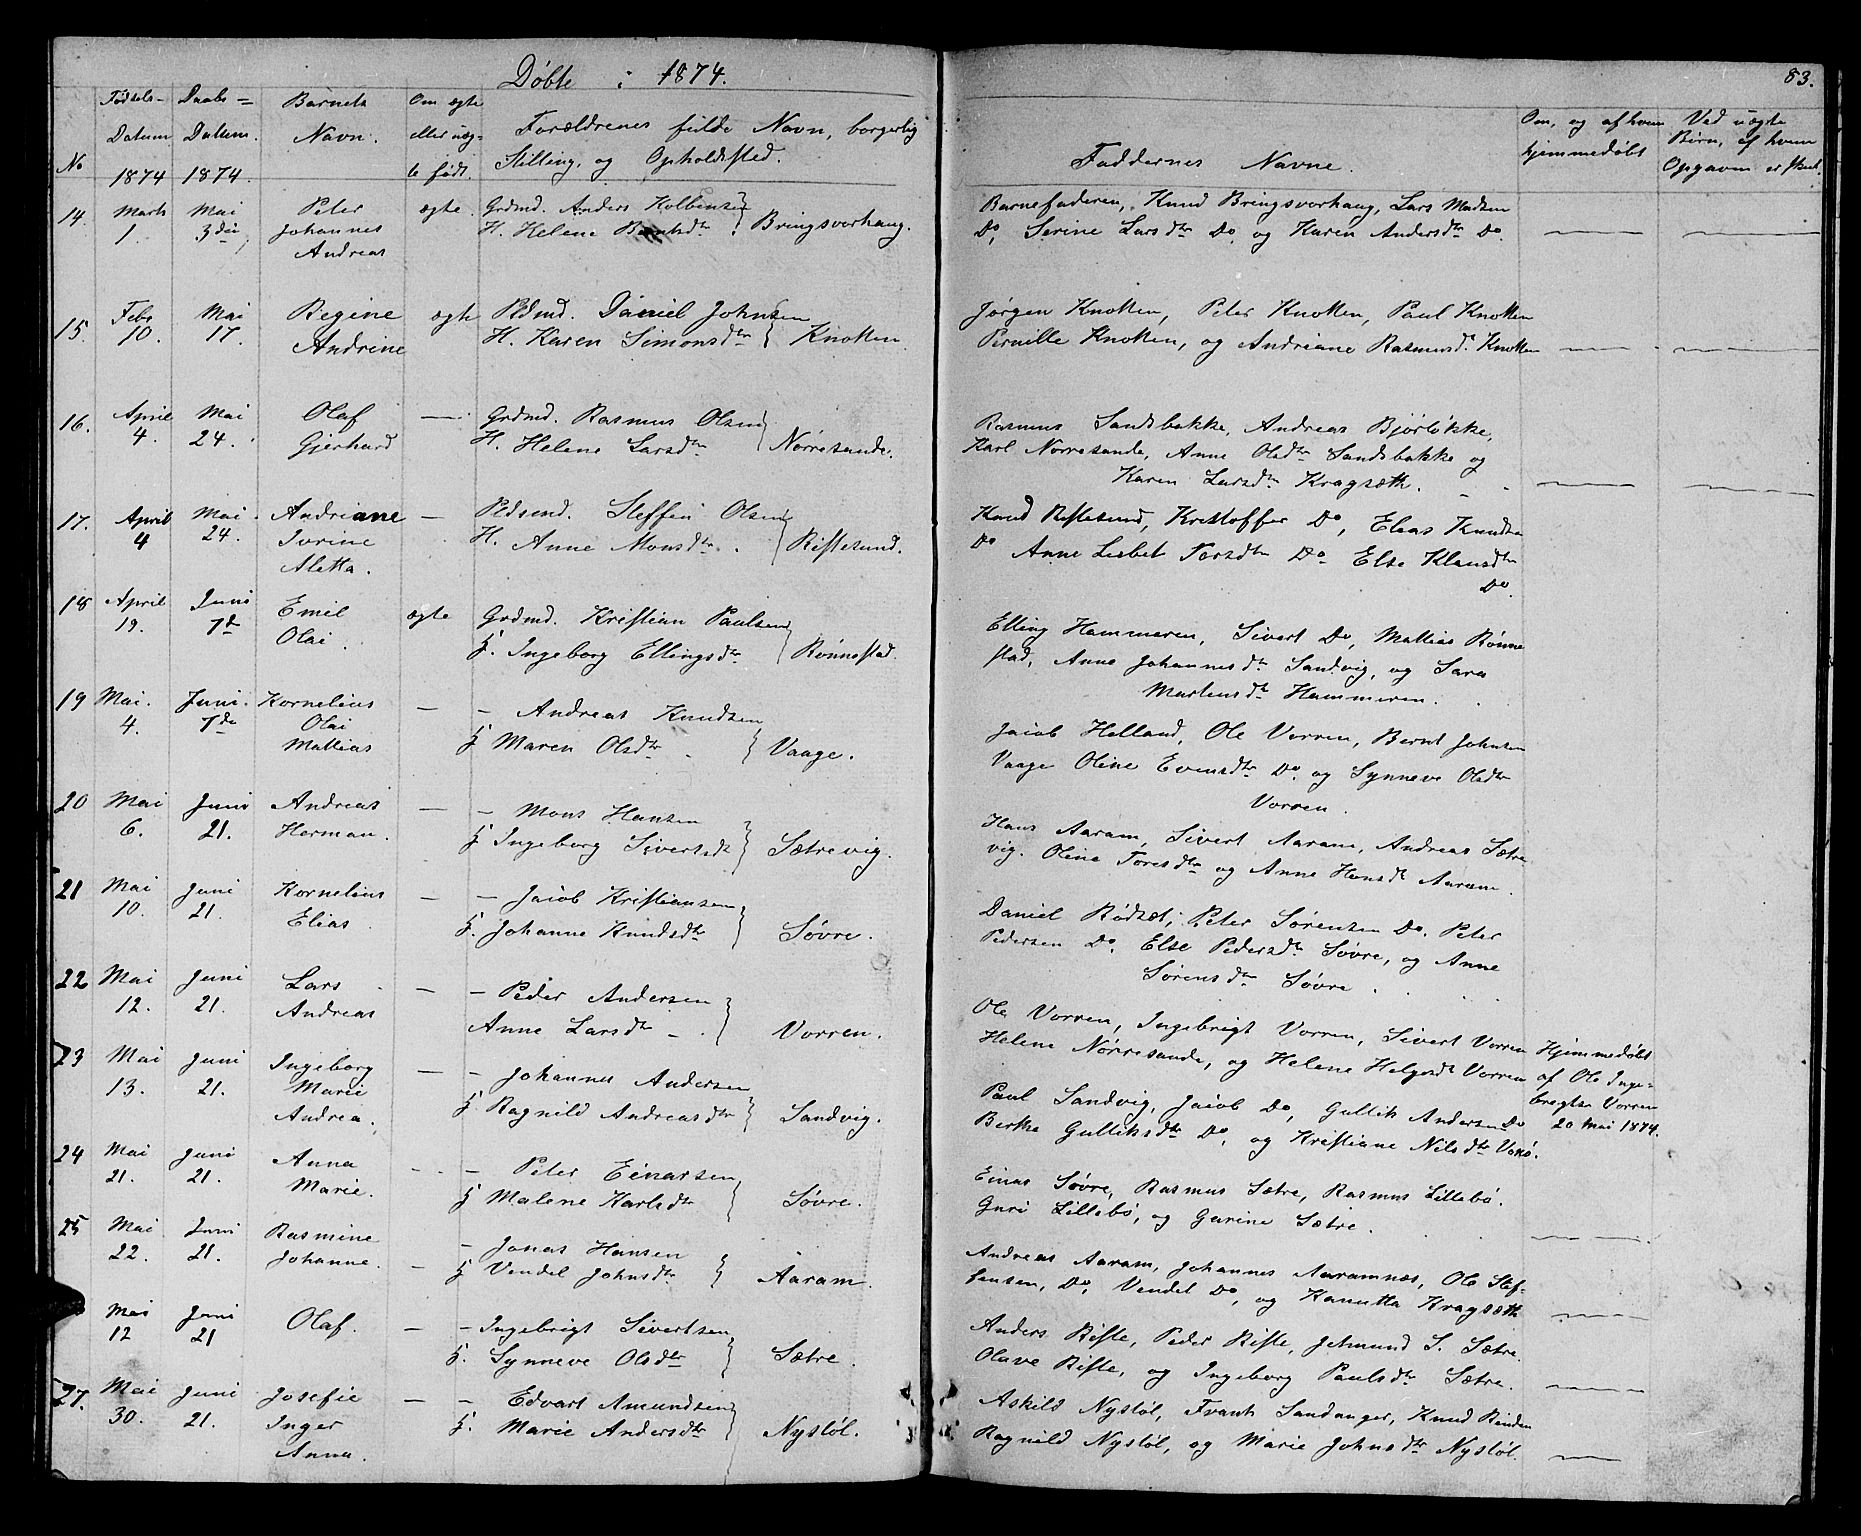 Døbte i 1874.
83.
No
Fødsels-
Datum
1874
Daabs-
Datum.
1874.
Barnets
Navn.
Om ægte
eller uæg-
te født.
Forældrenes fulde Navn, borgerlig
Stilling, og Opholdssted.
Faddernes Navne.
Om, og af hvem
hjemmedøbt
Ved uægte
Børn, af hvem
Opgaven er skeet.
14. Marts 1. Mai 3die Peter Johannes Andreas ægte. Grdmd. Anders Kolbensen
H. Helene Berntsdtr. Bringsvorhaug.
Barnefaderen, Knud Bringsvorhaug, Lars Madsen
Do, Serine Larsdtr Do, og Karen Andersdtr Do.
15. Febr 10. Mai 17. Regine Andrine ægte Pldsmd. Daniel Johnsen
H. Karen Simonsdtr Knotten
Jørgen Knotten, Peter Knotten, Paul Knotten
Pernille Knotten, og Andriane Rasmusd. Knotten
16. April 4. Mai 24. Olaf Gjerhard — Grdmd. Rasmus Olsen
H. Helene Larsdtr Nørresande.
Rasmus Sandsbakke, Andreas Bjørløkke,
Karl Nørresande, Anne Olsdtr Sandsbakke og
Karen Larsdtr Kragsæth.
17. April 4 Mai 24. Andriane Ivrine Aletta. — Pldsmd. Steffen Olsen
H. Anne Monsdtr. Riftesund.
Knud Riftesund, Kristoffer Do, Elias Knudsen
Do Anne Lisbet Larsdtr Do. Else Klausdtr
Do.
18 April 19. Juni 7de Emil Olai. ægte Grdmd. Kristian Paulsen
H. Ingeborg Ellingsdtr Rønnestad.
Elling Hammeren, Sivert Do, Mattias Rønne
stad, Anne Johannesdtr Sandvig, og Sara
Martinsdtr Hammeren.
19 Mai 4. Juni 7de Kornelius Olai Mattias — — Andreas Knudsen
H Maren Olsdtr. Vaage.
Jacob Helland, Ole Vorren, Bernt Johnsen
Vaage Oline Evensdtr Do. og Synneve Olsdtr
Vorren.
20 Mai 6. Juni 21. Andreas Herman. — — Mons Hansen
H Ingeborg Sivertsdtr Sætrevig.
Hans Aaram, Sivert Aaram, Andreas Sætre
vig. Oline Toresdtr og Anne Hansdtr Aaram.
21 Mai 10. Juni 21. Kornelius Elias — — Jacob Kristiansen
H. Johanne Knudsdtr Søvre.
Daniel Rødsæt, Peter Sørensen Do. Peter
Pedersen Do. Else Pedersdtr Søvre, og Anne
Sørensdtr Søvre.
22 Mai 12. Juni 21. Lars Andreas — — Peder Andersen
Anne Larsdtr — Vorren.
Ole Vorren, Ingebrigt Vorren, Sivert Vorren
Helene Nørresande, og Helene Helgesdtr Vorren
Hjemmedøbt
af Ole Inge-
brigtsen Vorren
20 Mai 1874.
23 Mai 13. Juni 21. Ingeborg Marie Andrea. — — Johannes Andersen
H Ragnild Andreasdtr Sandvig.
Paul Sandvig, Jacob Do, Gullik Andersen Do
Berthe Gulliksdtr Do, og Kristiane Nilsdtr Vaksø.
24 Mai 21. Juni 21. Anna Marie. — — Peter Einarsen
H Malene Karlsdtr Søvre.
Einar Søvre, Rasmus Sætre, Rasmus Lillebø.
Guri Lillebø, og Gurine Sætre.
25 Mai 22. Juni 21. Rasmine Johanne. — — Jonas Hansen
H Vendel Johnsdtr Aaram.
Andreas Aaram, Johannes Aaramnæs, Ole Stef-
fensen, Do, Vendel Do, og Kanutta Kragsæth
Mai 12 Juni 21 Olaf. — — Ingebrigt Sivertsen
H. Synneve Olsdtr Sætre.
Anders Rifte, Peder Rifte, Jetmund S. Sætre.
Olave Rifte, og Ingeborg Paulsdtr Sætre.
27. Mai 30. Juni 21. Josefie Inger Anna. — — Edvart Amundsen
H. Marie Andersdtr Nystøl.
Askild Nystøl, Frants Sandanger, Knud Rinden
Ragnild Nystøl, og Marie Johnsdtr Nystøl.